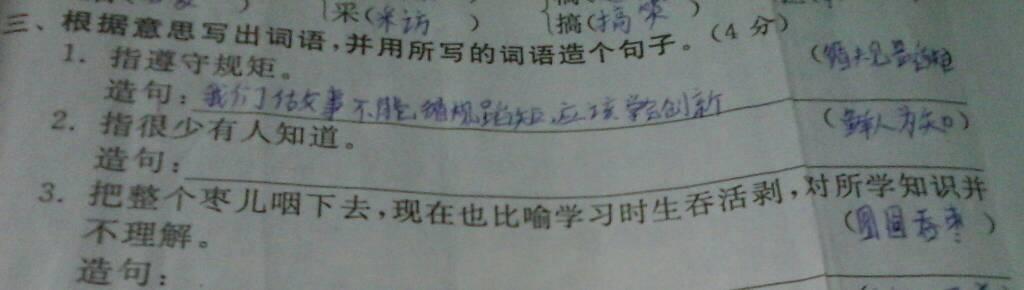 采(采访 ) 搞(搞笑 )
三、根据意思写出词语,并用所写的词语造个句子。(4分)
1. 指遵守规矩。 (循规蹈矩
造句:我们做事不能循规蹈矩,应该学会创新
2. 指很少有人知道。 (鲜为人知)
造句:
3. 把整个枣儿咽下去,现在也比喻学习时生吞活剥,对所学知识并
不理解。 (囫囵吞枣 )
造句: